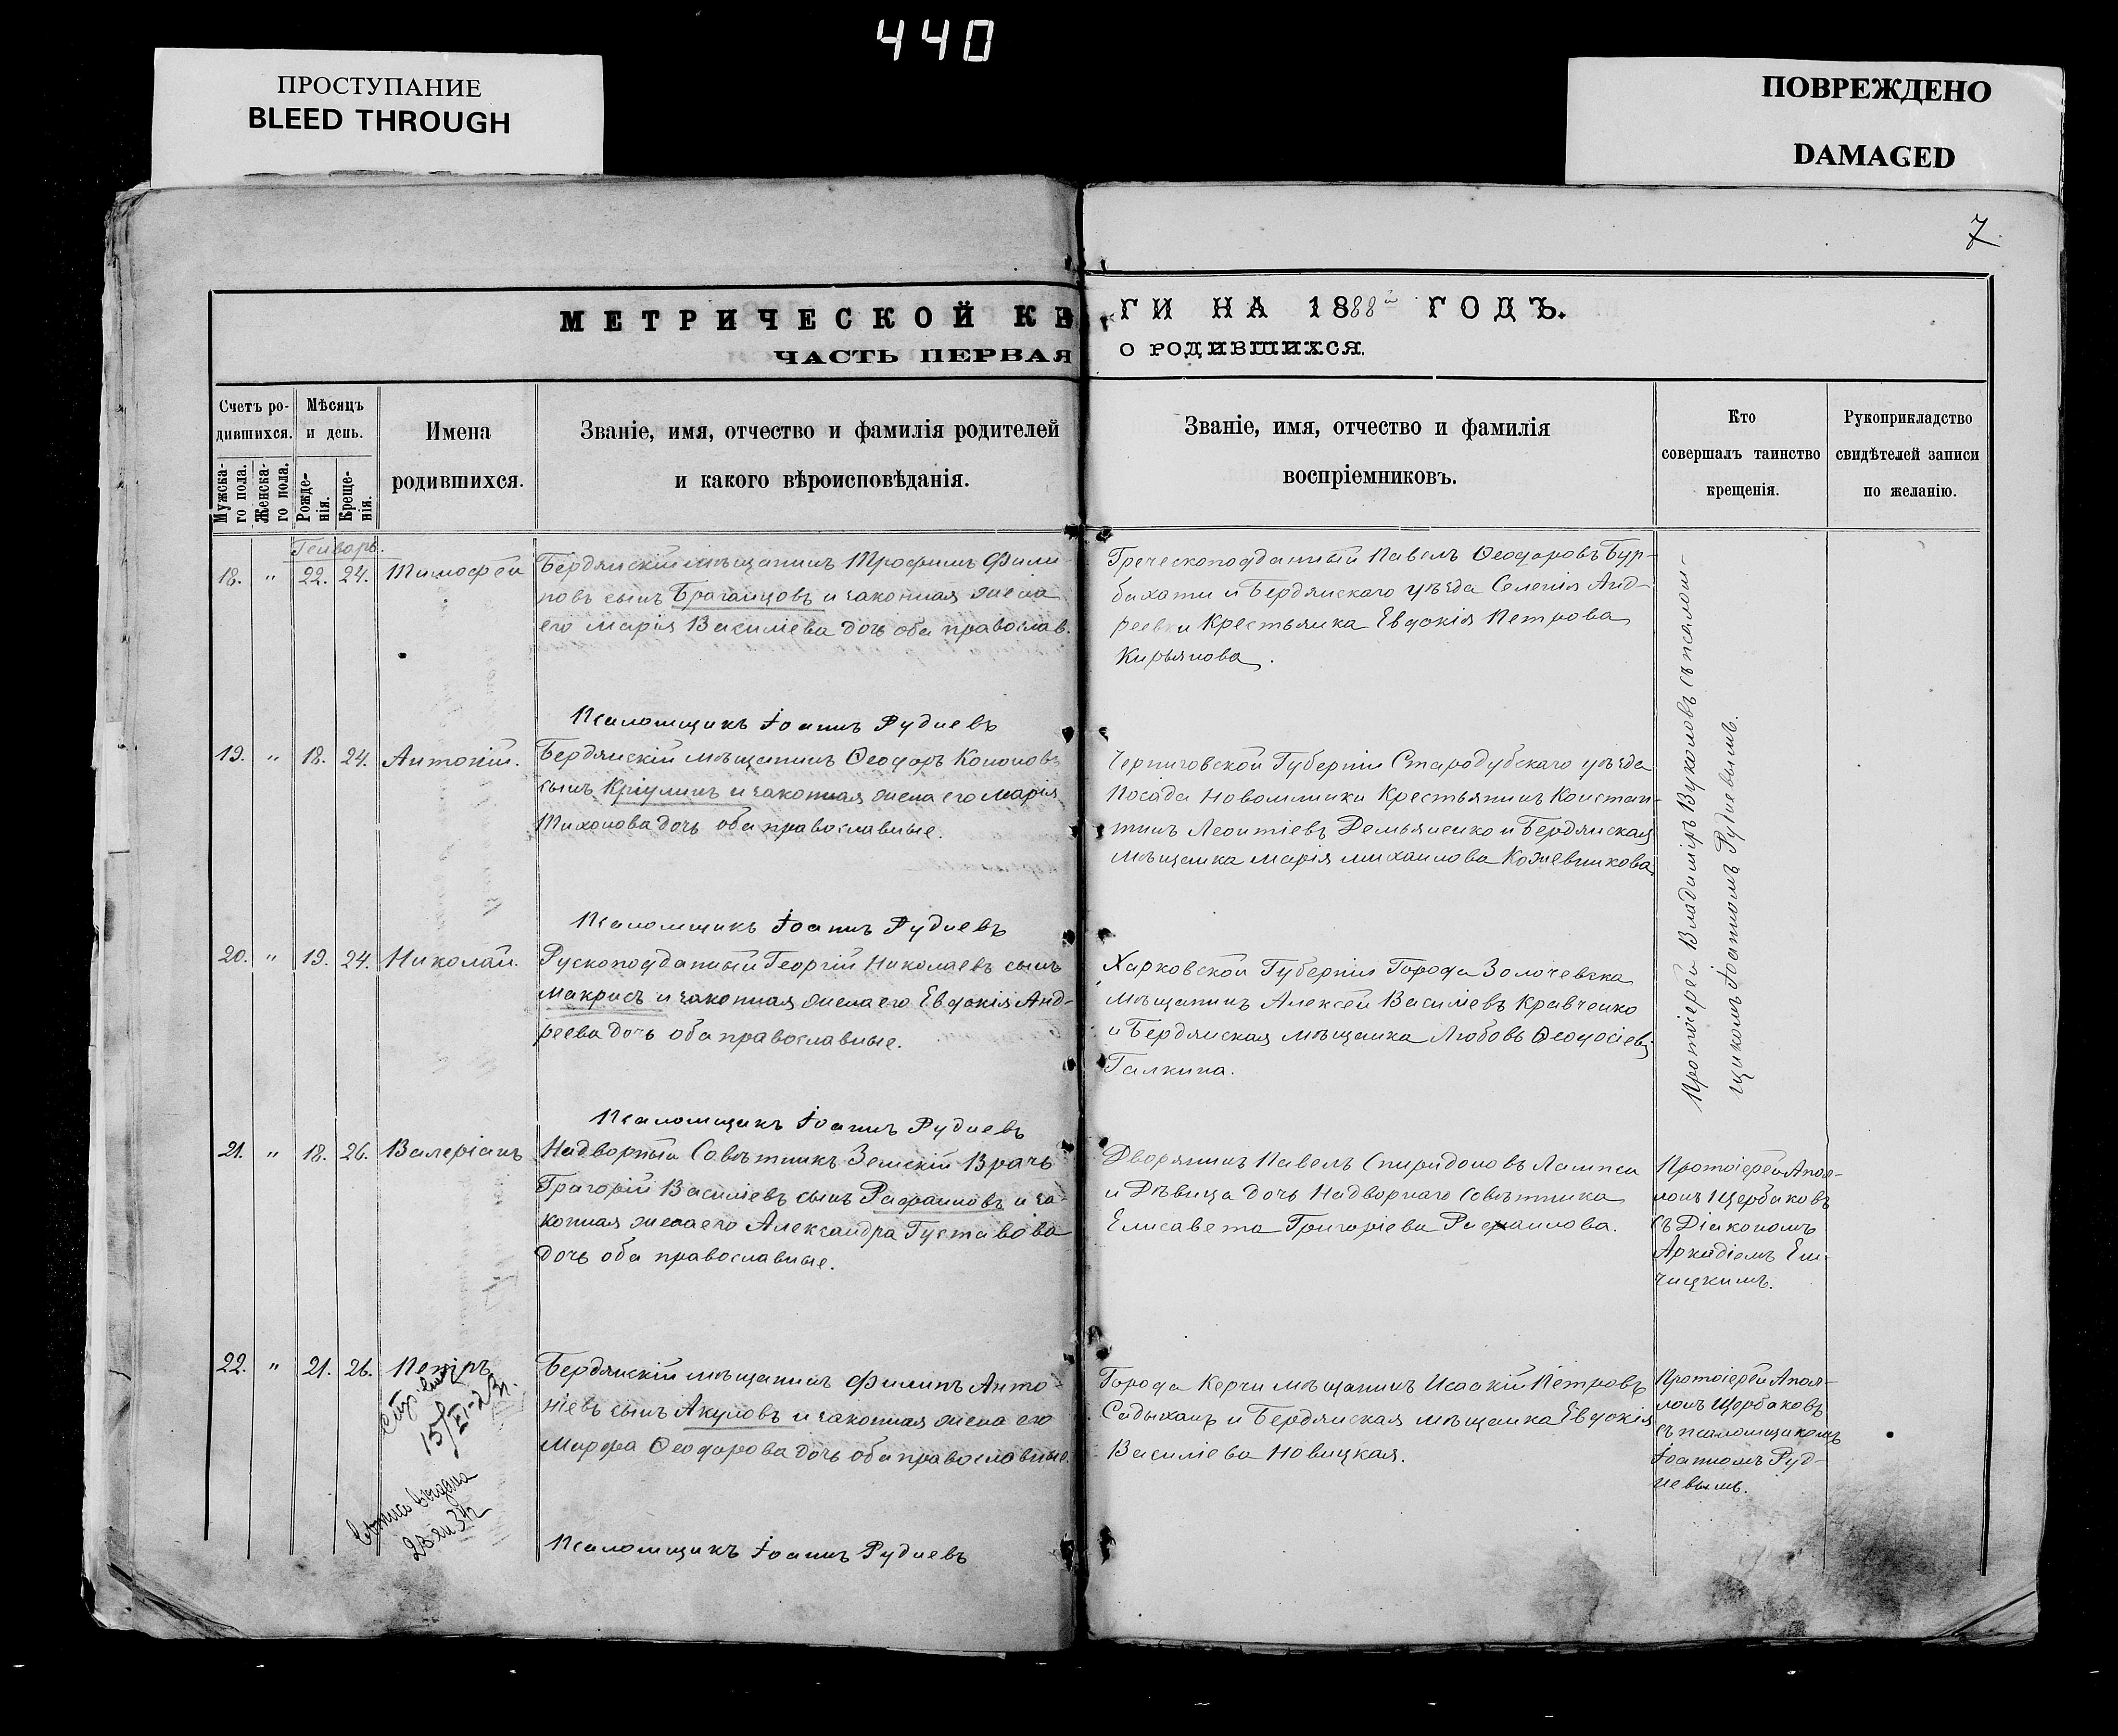 440
ПРОСТУПАНИЕ
BLEED THROUGH
ПОВРЕЖДЕНО
DAMAGED
7
МЕТРИЧЕСКОЙ КН
ГИ НА 1888й ГОДЪ.
ЧАСТЬ ПЕРВАЯ
О РОДИВШИХСЯ.
Счетъ ро-
дившихся.
Мужска-
го пола.
Женска-
го пола.
Мѣсяцъ
и день.
Рожде-
нія.
Креще-
нія.
Имена
родившихся.
Званіе, имя, отчество и фамилія родителей
и какого вѣроисповѣданія.
Званіе, имя, отчество и фамилія
воспріемниковъ.
Кто
совершалъ таинство
крещенія.
Рукоприкладство
свидѣтелей записи
по желанію.
Генварь.
18. " 22. 24. Тимофей
Бердянскій мѣщанинъ Трофимъ Фили-
повъ сынъ Браганцовъ и законная жена
его Марія Василіева дочь оба православ.
Греческоподданный Павелъ Ѳеодоровъ Бур-
бахати и Бердянскаго уѣзда Селенія Анд-
реевки Крестьянка Евдокія Петрова
Кирьянова.
Псаломщикъ Іоаннъ Рудневъ
19. " 18. 24. Антоній.
Бердянскій мѣщанинъ Ѳеодоръ Кононовъ
сынъ Кріулинъ и законная жена его Марія
Тихонова дочь оба православные.
Черниговской Губерніи Стародубскаго уѣзда
Посада Новомлинки Крестьянинъ Констан-
тинъ Леонтіевъ Демьяненко и Бердянская
мѣщанка Марія Михаилова Кожевникова.
Псаломщикъ Іоаннъ Рудневъ
20. " 19. 24. Николай.
Рускоподданный Георгій Николаевъ сынъ
Макрисъ и законная жена его Евдокія Анд-
реева дочь оба православные.
Харковской Губерніи Города Золочевска
мѣщанинъ Алексѣй Василіевъ Кравченко
и Бердянская мѣщанка Любовь Ѳеодосіева
Галкина.
Протоіерей Владиміръ Вуколовъ съ псалом-
щикомъ Іоанномъ Рудневымъ.
Псаломщикъ Іоаннъ Рудневъ
21. " 18. 26. Валеріанъ
Надворный Совѣтникъ Земскій Врачъ
Григорій Василіевъ сынъ Рафаиловъ и за-
конная жена его Александра Густавова
дочь оба православные.
Дворянинъ Павелъ Спиридоновъ Лампси
и Дѣвица дочь Надворнаго Совѣтника
Елисавета Григоріева Рафаилова.
Протоіерей Апол-
лонъ Щербаковъ
съ Діакономъ
Аркадіемъ Ен-
чицкимъ.
22. " 21. 26. Петръ
15/XI-23г.
выдана
Бердянскій мѣщанинъ Филипъ Анто-
ніевъ сынъ Акуловъ и законная жена его
Марфа Ѳеодорова дочь оба православные.
Города Керчи мѣщанинъ Исаакій Петровъ
Садыханъ и Бердянская мѣщанка Евдокія
Василіева Новицкая.
Протоіерей Апол-
лонъ Щербаковъ
съ псаломщикомъ
Іоанномъ Руд-
невымъ.
Псаломщикъ Іоаннъ Рудневъ